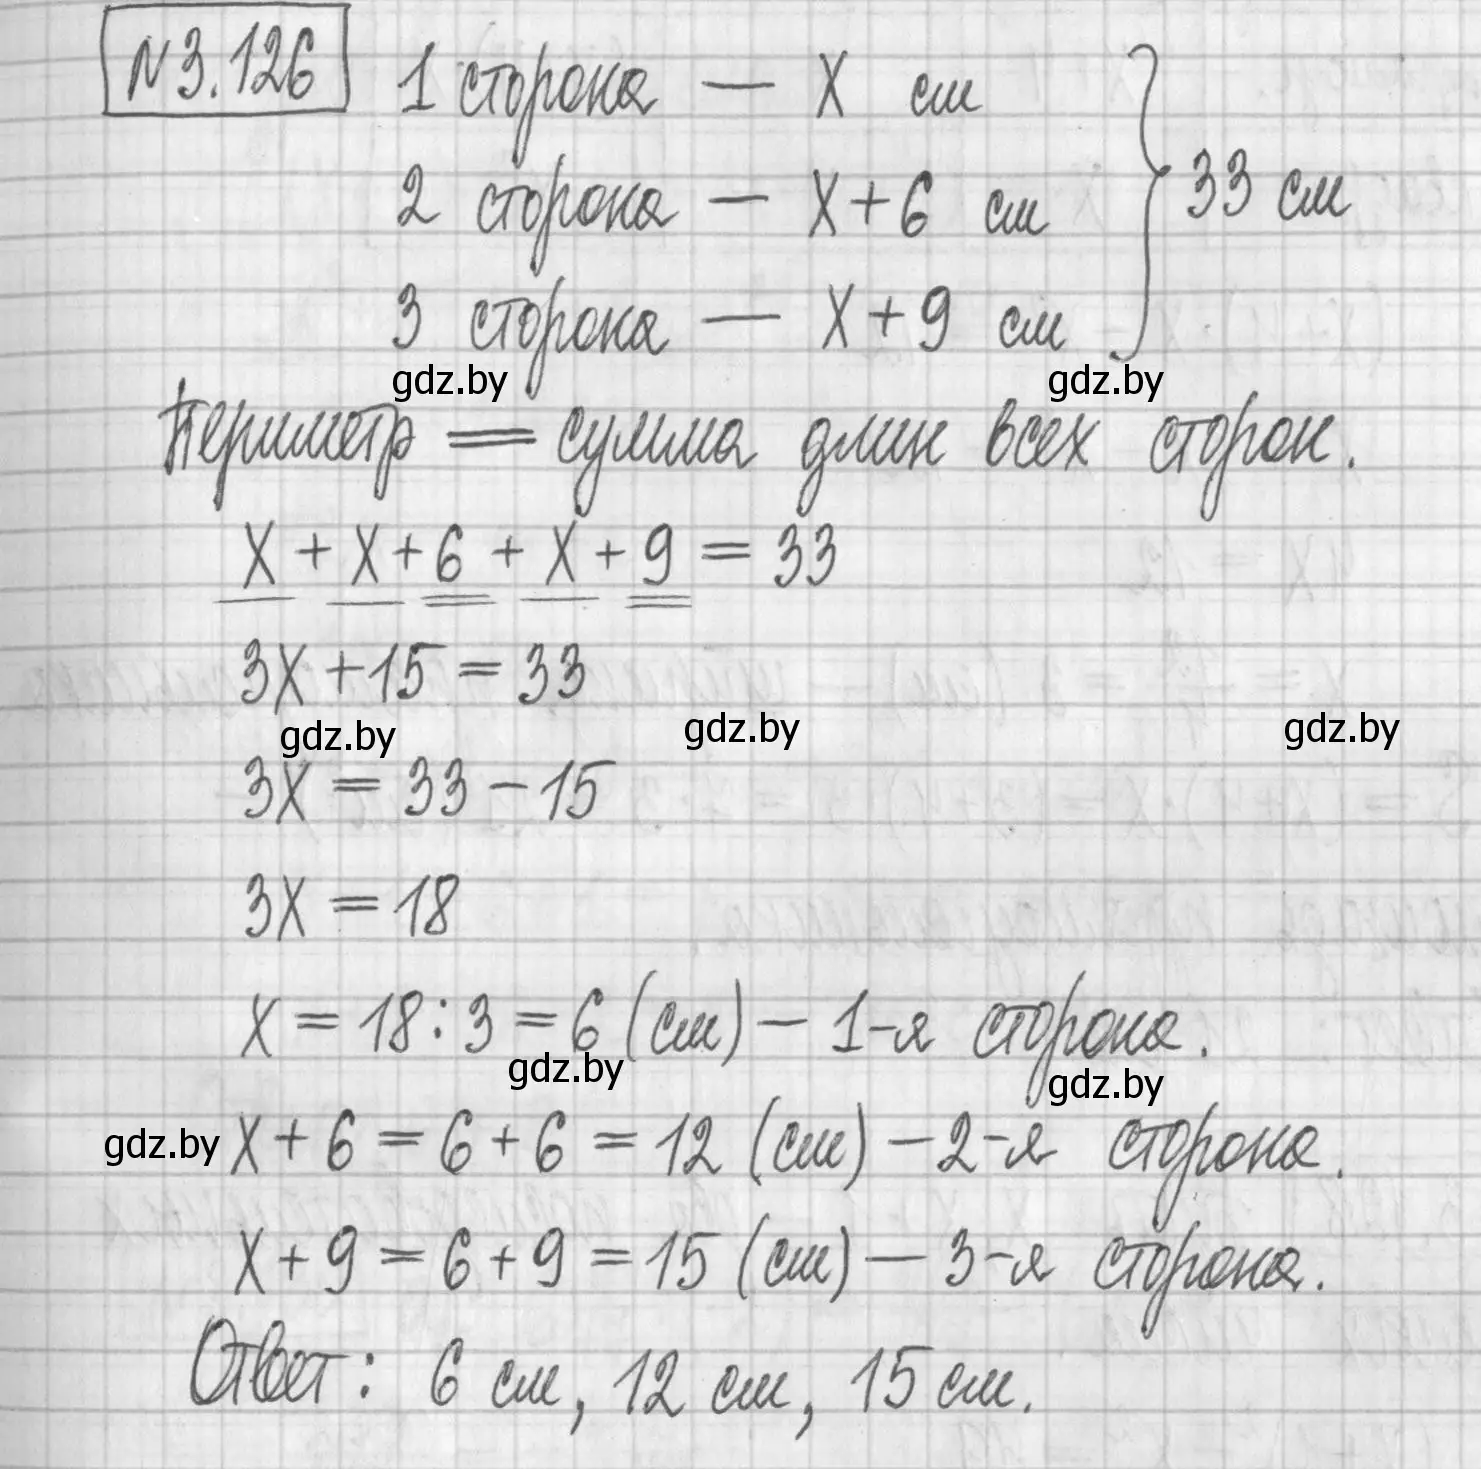 №3.126
1 сторона — x см
2 сторона — x+6 см
3 сторона — x+9 см
} 33 см
gdz.by gdz.by
Периметр = сумма длин всех сторон.
x + x + 6 + x + 9 = 33
3x + 15 = 33
gdz.by gdz.by gdz.by
3x = 33 – 15
3x = 18
x = 18 : 3 = 6 (см) – 1-я сторона.
gdz.by gdz.by
gdz.by x + 6 = 6 + 6 = 12 (см) – 2-я сторона.
x + 9 = 6 + 9 = 15 (см) – 3-я сторона.
Ответ: 6 см, 12 см, 15 см.